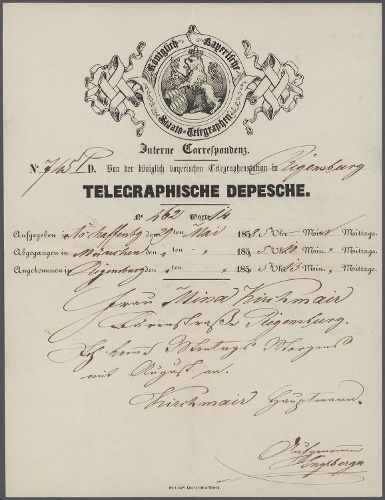 Königlich Bayerische
Staats-Telegraphen.
Interne Correspondenz.
No. 745 P D. Von der königlich bayerischen Telegraphenstation in Regensburg
TELEGRAPHISCHE DEPESCHE.
No. 462 Worte 14
Aufgegeben in den 29 ten Mai 185 Uhr Min. Mittags.
Abgegangen in München den " ten " 185 Uhr Min. Mittags.
Angekommen in Regensburg den " ten " 185 Uhr Min. Mittags.
Frau Mina Kirchmair
Regensburg.
Ich komme Montags Morgens
mit August an.
Kirchmair Hauptmann.